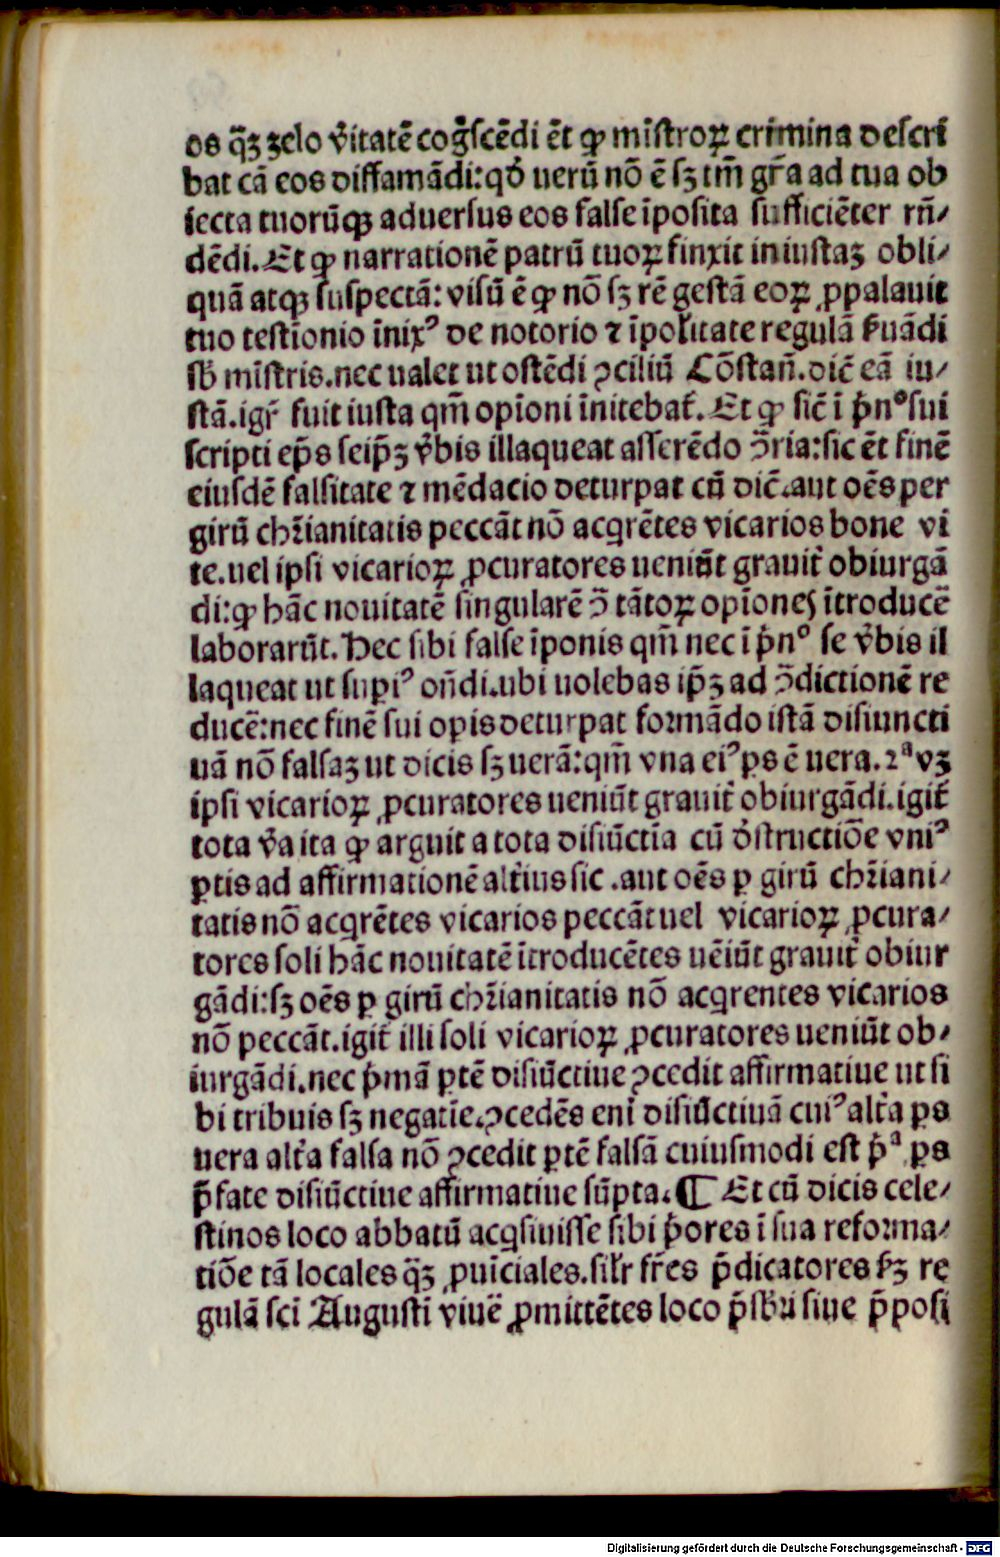 os q̄ꝫ zelo v̓itatē cog̓scēdi ēt ꝙ mīstroꝝ crimina descri
bat cā eos diffamādi:qd̓ uerū nō ē sꝫ tm̄ gr̄a ad tua ob
iecta tuorūqꝫ aduersus eos false īposita sufficiēter rn̄⸗
dēdi.Et ꝙ narrationē patrū tuoꝝ finxit iniustaꝫ obli⸗
quā atqꝫ suspectā: visū ē ꝙ nō sꝫ rē gestā eoꝝ ꝓpalauit
tuo testīonio īnixꝰ de notorio ⁊ īpoſſitate regulā ẜuādi
sb̓ mīstris.nec ualet ut ostēdi ꝯciliū Cōstan̄.dic̄ eā iu⸗
stā.igr̄ fuit iusta qm̄ opīoni īnitebat̓. Et ꝙ sic̄ ī p̓nᵒ sui
scripti ep̄s seip̄ꝫ v̓bis illaqueat asserēdo ꝯ̄ria:sic ēt finē
eiusdē falsitate ⁊ mēdacio deturpat cū dic̄.aut oēs per
girū chr̄ianitatis peccāt nō acqrētes vicarios bone vi
te.uel ipsi vicarioꝝ ꝓcuratores ueniūt grauit̓ obiurgā
di:ꝙ hāc nouitatē singularē ꝯ̄ tātoꝝ opīones ītroducē̄
laborarūt.Hec sibi false īponis qm̄ nec ī p̓nᵒ se v̓bis il
laqueat ut supiꝰ on̄di.ubi uolebas ip̄ꝫ ad ꝯ̄dictionē re
ducē:nec finē sui opis deturpat formādo istā disiuncti
uā nō falsaꝫ ut dicis sꝫ uerā:qm̄ vna eiꝰ ꝑs ē uera.2ª vꝫ
ipsi vicarioꝝ ꝓcuratores ueniūt grauit̓ obiurgādi.igit̓
tota v̓a ita ꝙ arguit a tota disiūctīa cū d̓structiōe vniꝰ
ꝑtis ad affirmationē alt̓ius sic .aut oēs ꝑ girū chr̄iani⸗
tatis nō acqrētes vicarios peccāt uel vicarioꝝ ꝓcura⸗
tores soli hāc nouitatē ītroducētes uēiūt grauit̓ obiur
gādi:sꝫ oēs ꝑ girū chr̄ianitatis nō acqrentes vicarios
nō peccāt.igit̓ illi soli vicarioꝝ ꝓcuratores ueniūt ob⸗
iurgādi.nec p̓mā ꝑtē disiūctiue ꝯcedit affirmatiue ut si
bi tribuis sꝫ negatīe.ꝯcedēs eni̓ disiūctiuā cuiꝰ alt̓a ꝑs
uera alt̓a falsa nō ꝯcedit ꝑtē falsā cuiusmodi est p̓ª ꝑs
p̄fate disiūctiue affirmatiue sūpta.¶ Et cū dicis cele⸗
stinos loco abbatū acqsiuisse sibi p̓ores ī sua reforma⸗
tiōe tā locales q̄ꝫ ꝓuīciales.sil̓r fr̄es p̄dicatores ẜꝫ re
gulā sci̓ Augusti̓ viuē̄ ꝓmittētes loco p̄sb̓ri siue p̄posi
Digitalisierung gefördert durch die Deutsche Forschungsgemeinschaft - DFG